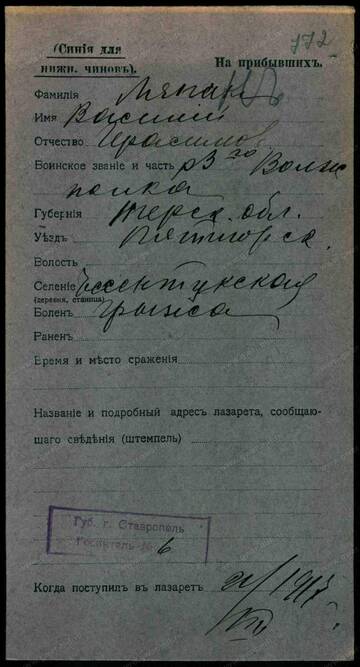 172
(Синія для
нижн. чиновъ).
На прибывшихъ.
Фамилія
Имя Василій
Отчество Герасимов
Воинское званіе и часть р 3го Волж
полка
Губернія Терск. обл.
Уѣздъ Пятигорск.
Волость
Селеніе Ессентукская
(деревня, станица)
Боленъ Грыжа
Раненъ
Время и мѣсто сраженія
Названіе и подробный адресъ лазарета, сообщаю-
щаго свѣдѣнія (штемпель)
Губ. г. Ставрополь
Госпиталь № 6
Когда поступилъ въ лазаретъ 1917